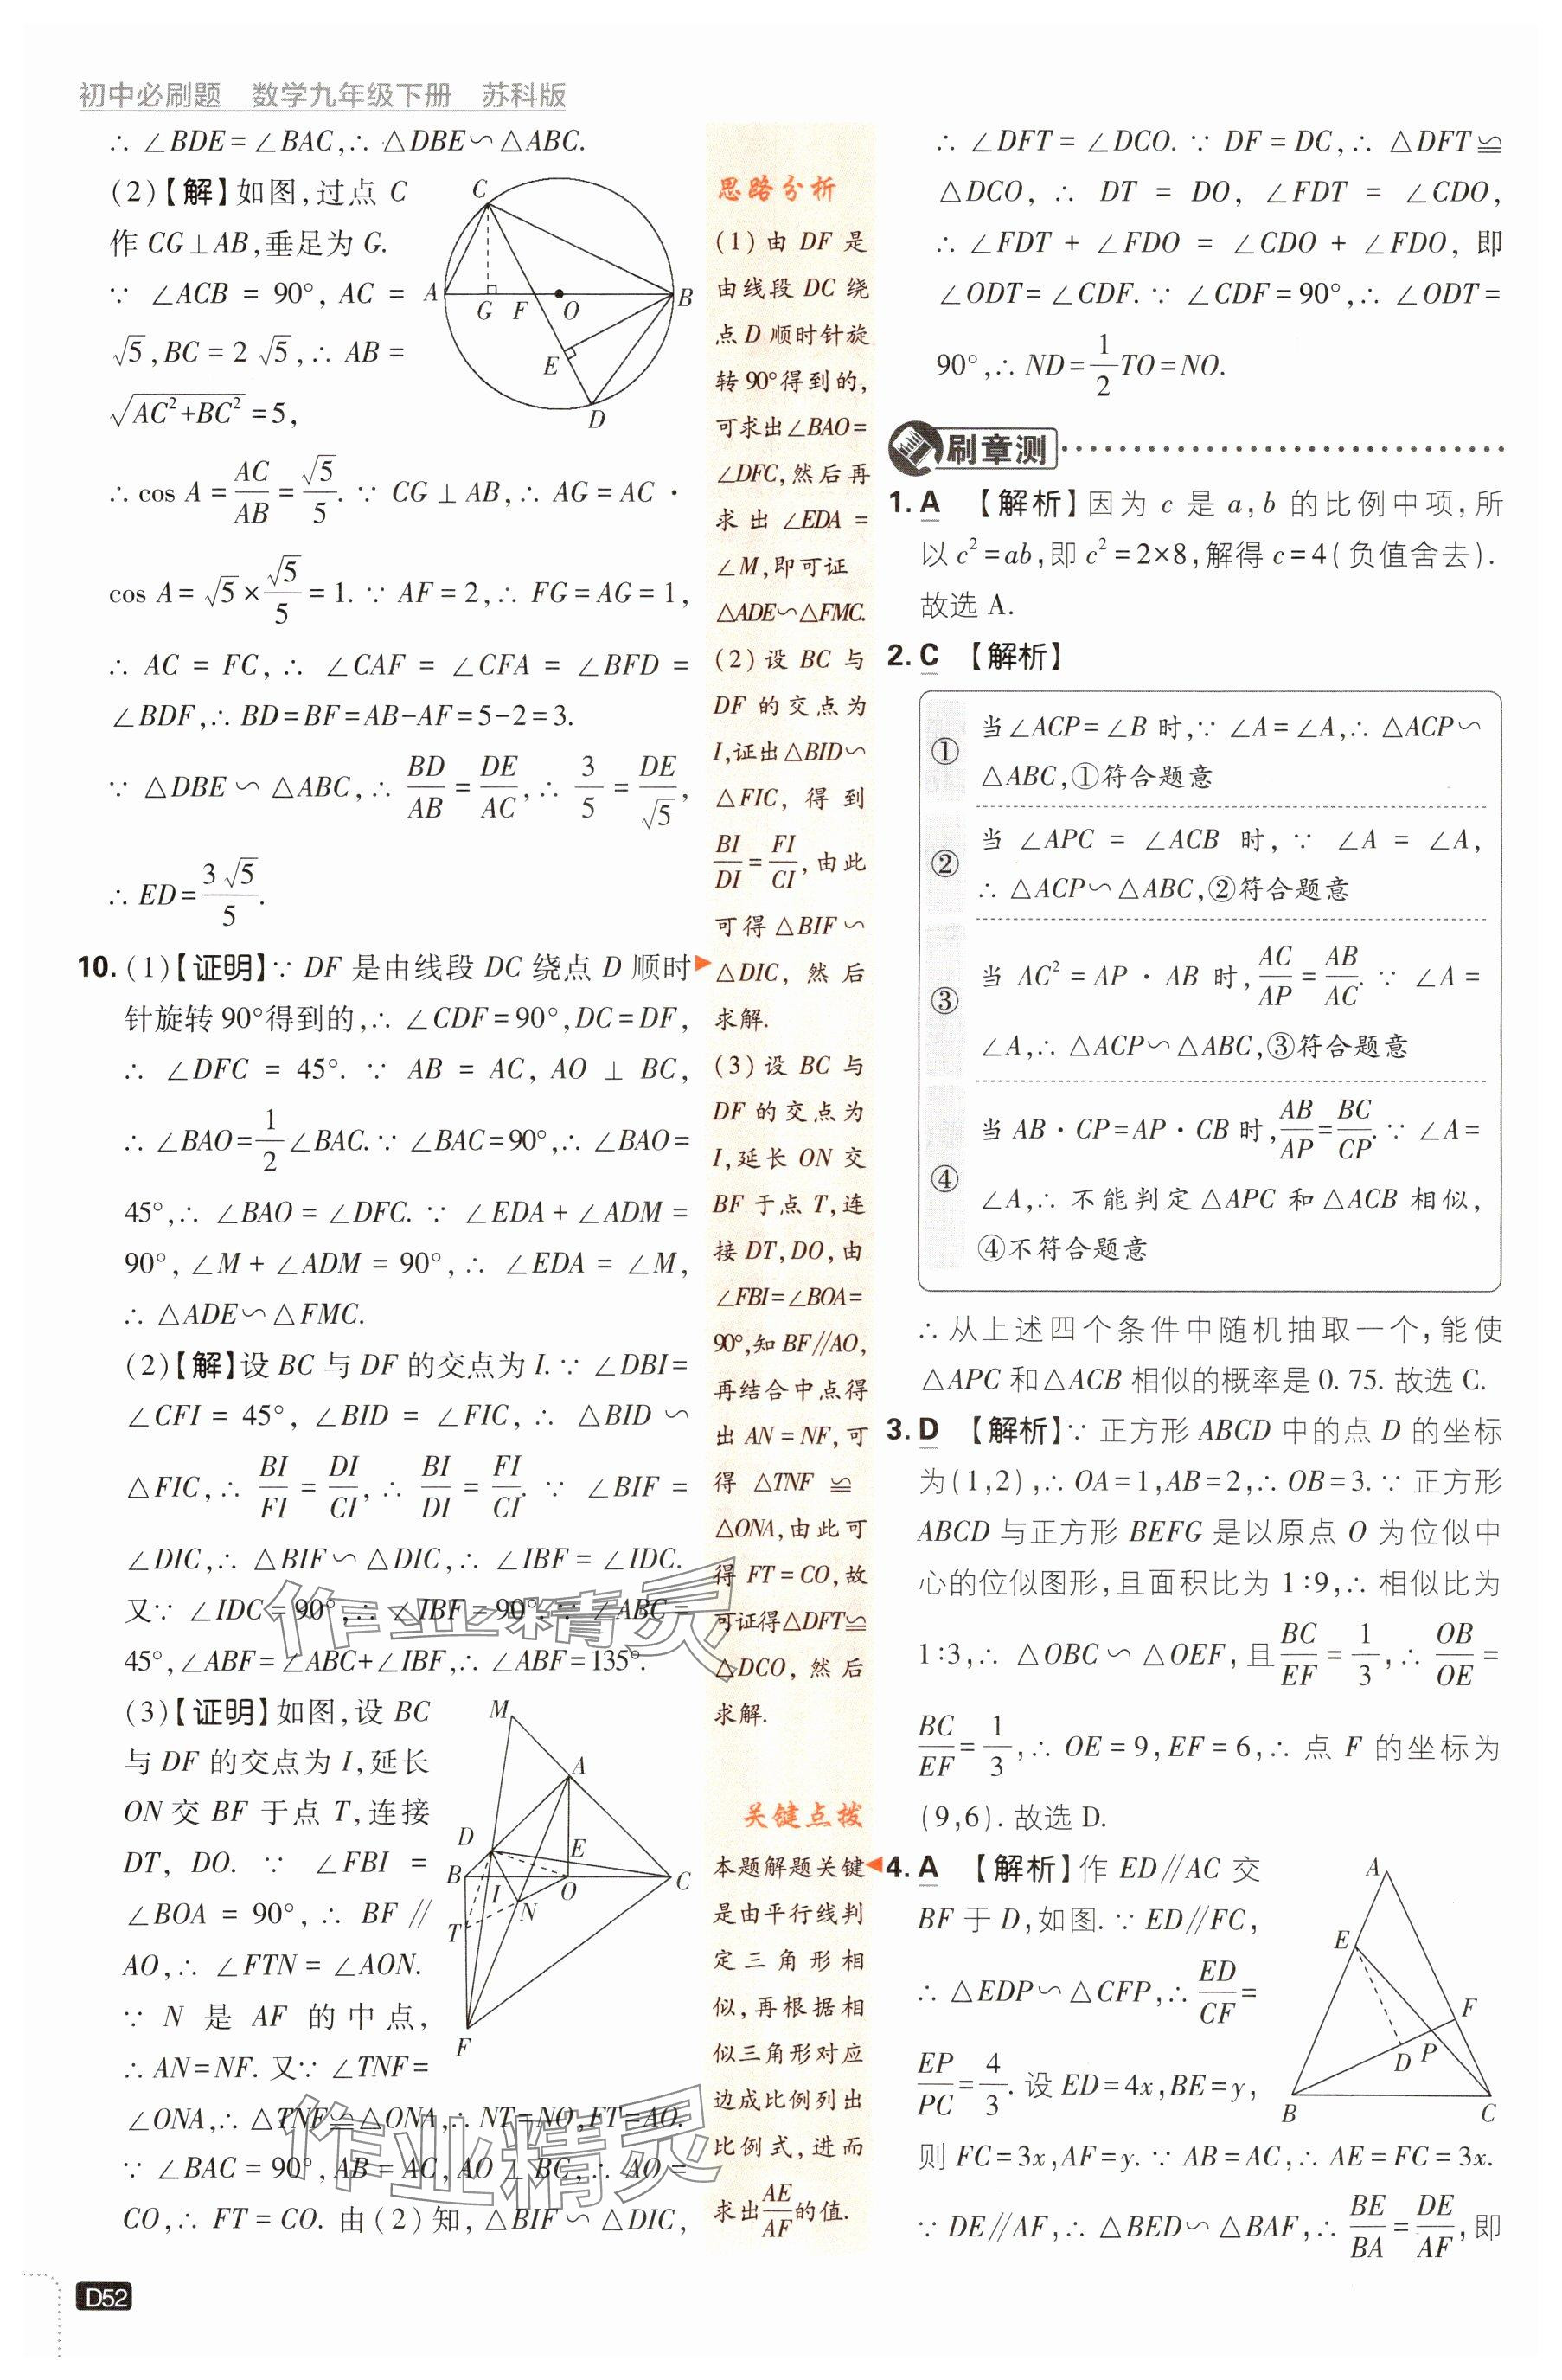 初中必刷题　数学九年级下册　苏科版
∴ ∠BDE=∠BAC,∴ △DBE∽△ABC.
(2)【解】如图,过点 C
作 CG⊥AB,垂足为 G.
∵ ∠ACB = 90°, AC =
√5,BC=2√5,∴ AB=
√(AC²+BC²)=5,
∴ cos A=AC/AB=√5/5. ∵ CG⊥AB,∴ AG=AC·
cos A=√5×√5/5=1. ∵ AF=2,∴ FG=AG=1,
∴ AC = FC,∴ ∠CAF = ∠CFA = ∠BFD =
∠BDF,∴ BD=BF=AB-AF=5-2=3.
∵ △DBE∽△ABC,∴ BD/AB=DE/AC,∴ 3/5=DE/√5,
∴ ED=3√5/5.
C
A
G
F
O
B
E
D
10. (1)【证明】∵ DF 是由线段 DC 绕点 D 顺时
针旋转 90°得到的,∴ ∠CDF=90°,DC=DF,
∴ ∠DFC = 45°. ∵ AB = AC, AO ⊥ BC,
∴ ∠BAO=1/2∠BAC. ∵ ∠BAC=90°,∴ ∠BAO=
45°,∴ ∠BAO=∠DFC. ∵ ∠EDA+∠ADM=
90°,∠M+∠ADM=90°,∴ ∠EDA=∠M,
∴ △ADE∽△FMC.
(2)【解】设 BC 与 DF 的交点为 I. ∵ ∠DBI=
∠CFI = 45°, ∠BID = ∠FIC, ∴ △BID ∽
△FIC,∴ BI/FI=DI/CI,∴ BI/DI=FI/CI. ∵ ∠BIF=
∠DIC,∴ △BIF∽△DIC,∴ ∠IBF=∠IDC.
又∵ ∠IDC=90°,∴ ∠IBF=90°. ∵ ∠ABC=
45°,∠ABF=∠ABC+∠IBF,∴ ∠ABF=135°.
(3)【证明】如图,设 BC
与 DF 的交点为 I,延长
ON 交 BF 于点 T,连接
DT, DO. ∵ ∠FBI =
∠BOA = 90°, ∴ BF∥
AO,∴ ∠FTN=∠AON.
∵ N 是 AF 的中点,
∴ AN=NF. 又∵ ∠TNF=
∠ONA,∴ △TNF≌△ONA,∴ NT=NO,FT=AO.
∵ ∠BAC=90°,AB=AC,AO⊥BC,∴ AO=
CO,∴ FT=CO. 由(2)知,△BIF∽△DIC,
M
A
D
E
B
I
O
C
N
T
F
思路分析
(1)由 DF 是
由线段 DC 绕
点 D 顺时针旋
转 90°得到的,
可求出∠BAO=
∠DFC,然后再
求出∠EDA=
∠M,即可证
△ADE∽△FMC.
(2)设 BC 与
DF 的交点为
I,证出△BID∽
△FIC,得到
BI/DI=FI/CI,由此
可得△BIF∽
△DIC,然后
求解.
(3)设 BC 与
DF 的交点为
I,延长 ON 交
BF 于点 T,连
接 DT,DO,由
∠FBI=∠BOA=
90°,知 BF∥AO,
再结合中点得
出 AN=NF,可
得△TNF≌
△ONA,由此可
得 FT=CO,故
可证得△DFT≌
△DCO,然后
求解.
关键点拨
本题解题关键
是由平行线判
定三角形相
似,再根据相
似三角形对应
边成比例列出
比例式,进而
求出AE/AF的值.
∴ ∠DFT=∠DCO. ∵ DF=DC,∴ △DFT≌
△DCO, ∴ DT = DO, ∠FDT = ∠CDO,
∴ ∠FDT+∠FDO=∠CDO+∠FDO,即
∠ODT=∠CDF. ∵ ∠CDF=90°,∴ ∠ODT=
90°,∴ ND=1/2TO=NO.
刷章测
1. A 【解析】因为 c 是 a,b 的比例中项,所
以 c²=ab,即 c²=2×8,解得 c=4(负值舍去).
故选 A.
2. C 【解析】
① 当∠ACP=∠B 时,∵ ∠A=∠A,∴ △ACP∽
△ABC,①符合题意
② 当 ∠APC = ∠ACB 时, ∵ ∠A = ∠A,
∴ △ACP∽△ABC,②符合题意
③ 当 AC²=AP·AB 时,AC/AP=AB/AC. ∵ ∠A=
∠A,∴ △ACP∽△ABC,③符合题意
④ 当 AB·CP=AP·CB 时,AB/AP=BC/CP. ∵ ∠A=
∠A,∴ 不能判定△APC 和△ACB 相似,
④不符合题意
∴ 从上述四个条件中随机抽取一个,能使
△APC 和△ACB 相似的概率是 0.75. 故选 C.
3. D 【解析】∵ 正方形 ABCD 中的点 D 的坐标
为(1,2),∴ OA=1,AB=2,∴ OB=3. ∵ 正方形
ABCD 与正方形 BEFG 是以原点 O 为位似中
心的位似图形,且面积比为 1∶9,∴ 相似比为
1∶3,∴ △OBC∽△OEF,且BC/EF=1/3,∴ OB/OE=
BC/EF=1/3,∴ OE=9,EF=6,∴ 点 F 的坐标为
(9,6). 故选 D.
4. A 【解析】作 ED∥AC 交
BF 于 D,如图. ∵ ED∥FC,
∴ △EDP∽△CFP,∴ ED/CF=
EP/PC=4/3. 设 ED=4x,BE=y,
则 FC=3x,AF=y. ∵ AB=AC,∴ AE=FC=3x.
∵ DE∥AF,∴ △BED∽△BAF,∴ BE/BA=DE/AF,即
A
E
F
D
P
B
C
作业精灵
作业精灵
D52